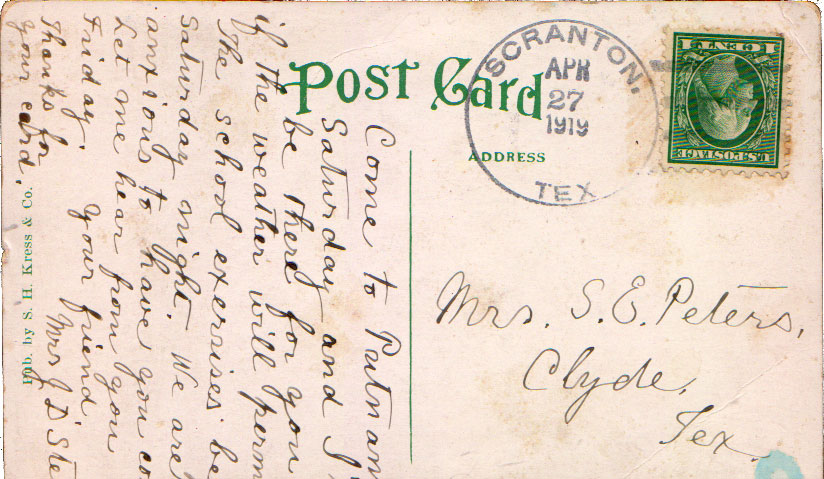 POST CARD
ADDRESS
SCRANTON,
APR
27
1919
TEX
U.S. POSTAGE
Mrs. S. E. Peters,
Clyde,
Tex
Come to Putnam
Saturday and I'
be there for you
if the weather will perm
The school exersises be
Saturday night. We are
anxious to have you co
Let me hear from you
Friday.
Your friend
Mrs J D Ste
Thanks for
your card.
Pub. by S. H. Kress & Co.